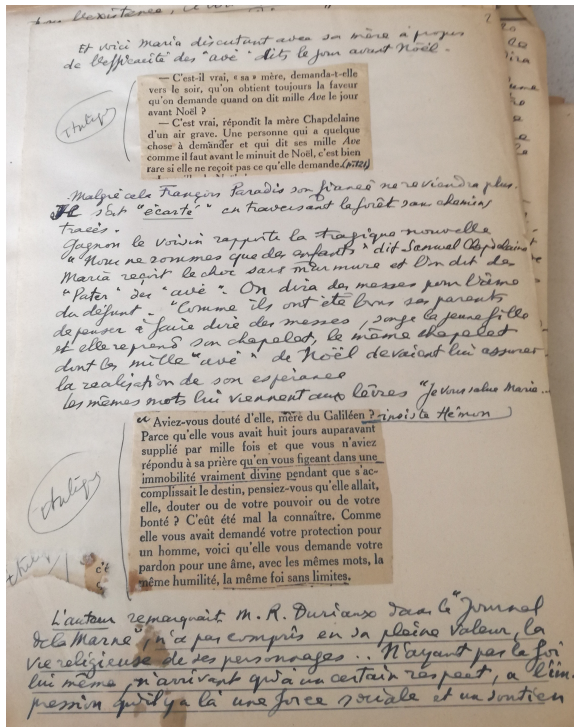 l'existence,
2
Et voici Maria discutant avec sa mère à propos
de l'efficacité des "avé" dits le jour avant Noël.
— C'est-il vrai, « sa » mère, demanda-t-elle
vers le soir, qu'on obtient toujours la faveur
qu'on demande quand on dit mille Ave le jour
avant Noël ?
— C'est vrai, répondit la mère Chapdelaine
d'un air grave. Une personne qui a quelque
chose à demander et qui dit ses mille Ave
comme il faut avant le minuit de Noël, c'est bien
rare si elle ne reçoit pas ce qu'elle demande. (p.121)
Malgré cela François Paradis son fiancé ne reviendra plus.
Il s'est "écarté" en traversant la forêt sans chemins
tracés.
Gagnon le voisin rapporte la tragique nouvelle
"Nous ne sommes que des enfants" dit Samuel Chapdelaine
Maria reçoit le choc sans murmure et l'on dit des
"Pater" des "avé". On dira des messes pour l'âme
du défunt. "Comme ils ont été bons ses parents
de penser à faire dire des messes, songe la jeune fille
et elle reprend son chapelet, le même chapelet
dont les mille "avé" de Noël devaient lui assurer
la réalisation de son espérance
les mêmes mots lui viennent aux lèvres "Je vous salue Marie...
" Aviez-vous douté d'elle, mère du Galiléen ? insiste Hémon
Parce qu'elle vous avait huit jours auparavant
supplié par mille fois et que vous n'aviez
répondu à sa prière qu'en vous figeant dans une
immobilité vraiment divine pendant que s'ac-
complissait le destin, pensiez-vous qu'elle allait,
elle, douter ou de votre pouvoir ou de votre
bonté ? C'eût été mal la connaître. Comme
elle vous avait demandé votre protection pour
un homme, voici qu'elle vous demande votre
pardon pour une âme, avec les mêmes mots, la
même humilité, la même foi sans limites.
L'auteur remarquait M. R. Duriaux dans le "Journal
de la Marne", n'a pas compris en sa pleine valeur, la
vie religieuse de ses personnages... N'ayant pas la foi
lui même, n'arrivant qu'à un certain respect, a l'im-
pression qu'il y a là une force sociale et un soutien